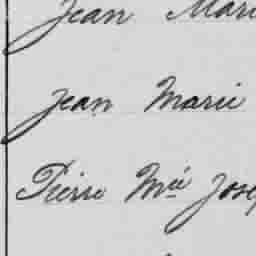 Jean Mari
Jean Marie
Pierre Mie Jose